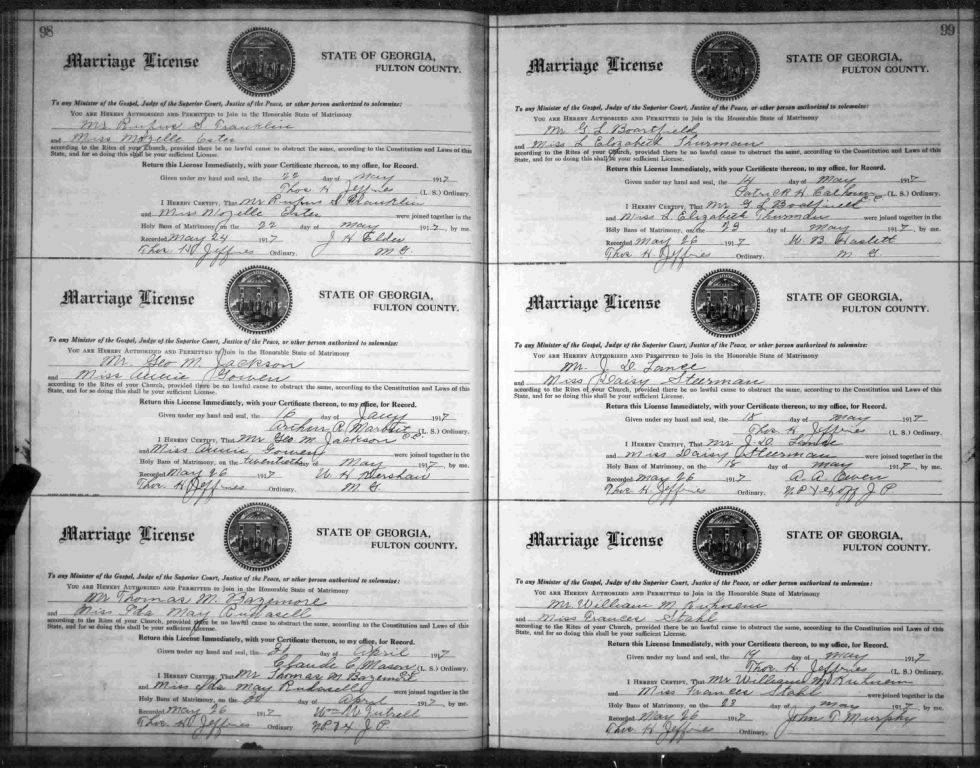 98
Marriage License
STATE OF GEORGIA,
FULTON COUNTY.
To any Minister of the Gospel, Judge of the Superior Court, Justice of the Peace, or other person authorized to solemnize:
You are Hereby Authorized and Permitted to Join in the Honorable State of Matrimony
Mr Rufus S Franklin
and Miss Mozelle Estes
according to the Rites of your Church, provided there be no lawful cause to obstruct the same, according to the Constitution and Laws of this
State, and for so doing this shall be your sufficient License.
Return this License Immediately, with your Certificate thereon, to my office, for Record.
Given under my hand and seal, the 22 day of May 1917
Thos H Jeffries (L. S.) Ordinary.
I Hereby Certify, That Mr Rufus S Franklin
and Miss Mozelle Estes were joined together in the
Holy Bans of Matrimony, on the 22 day of May 1917, by me.
Recorded May 24 1917 J H Elder
Thos H Jeffries Ordinary. M G.
Marriage License
STATE OF GEORGIA,
FULTON COUNTY.
To any Minister of the Gospel, Judge of the Superior Court, Justice of the Peace, or other person authorized to solemnize:
You are Hereby Authorized and Permitted to Join in the Honorable State of Matrimony
Mr. Geo M. Jackson
and Miss Annie Gowen
according to the Rites of your Church, provided there be no lawful cause to obstruct the same, according to the Constitution and Laws of this
State, and for so doing this shall be your sufficient License.
Return this License Immediately, with your Certificate thereon, to my office, for Record.
Given under my hand and seal, the 16 day of 1917
Arthur R. (L. S.) Ordinary.
I Hereby Certify, That Mr Geo M Jackson
and Miss Annie Gowen were joined together in the
Holy Bans of Matrimony, on the twentieth day of May 1917, by me.
Recorded May 26 1917 W H
Thos H Jeffries Ordinary. M G
Marriage License
STATE OF GEORGIA,
FULTON COUNTY.
To any Minister of the Gospel, Judge of the Superior Court, Justice of the Peace, or other person authorized to solemnize:
You are Hereby Authorized and Permitted to Join in the Honorable State of Matrimony
Mr Thomas M. Bazemore
and Miss Ida May Rudasill
according to the Rites of your Church, provided there be no lawful cause to obstruct the same, according to the Constitution and Laws of this
State, and for so doing this shall be your sufficient License.
Return this License Immediately, with your Certificate thereon, to my office, for Record.
Given under my hand and seal, the day of April 1917
Claude C Mason (L. S.) Ordinary.
I Hereby Certify, That Mr Thomas M
and Miss Ida May were joined together in the
Holy Bans of Matrimony, on the day of April 1917, by me.
Recorded May 26 1917 Wm
Thos H Jeffries Ordinary J P
99
Marriage License
STATE OF GEORGIA,
FULTON COUNTY.
To any Minister of the Gospel, Judge of the Superior Court, Justice of the Peace, or other person authorized to solemnize:
You are Hereby Authorized and Permitted to Join in the Honorable State of Matrimony
Mr G L Boartfield
and Miss L Elizabeth Thurman
according to the Rites of your Church, provided there be no lawful cause to obstruct the same, according to the Constitution and Laws of this
State, and for so doing this shall be your sufficient License.
Return this License Immediately, with your Certificate thereon, to my office, for Record.
Given under my hand and seal, the 14 day of May 1917
Patrick H Calhoun (L. S.) Ordinary.
I Hereby Certify, That Mr G L
and Miss L Elizabeth Thurman were joined together in the
Holy Bans of Matrimony, on the 23 day of May 1917, by me.
Recorded May 26 1917 W B Haslett
Thos H Jeffries Ordinary. M G.
Marriage License
STATE OF GEORGIA,
FULTON COUNTY.
To any Minister of the Gospel, Judge of the Superior Court, Justice of the Peace, or other person authorized to solemnize:
You are Hereby Authorized and Permitted to Join in the Honorable State of Matrimony
Mr. J. D. Lance
and Miss Daisy Steerman
according to the Rites of your Church, provided there be no lawful cause to obstruct the same, according to the Constitution and Laws of this
State, and for so doing this shall be your sufficient License.
Return this License Immediately, with your Certificate thereon, to my office, for Record.
Given under my hand and seal, the 18 day of May 1917
Thos H Jeffries (L. S.) Ordinary.
I Hereby Certify, That Mr J. D. Lance
and Miss Daisy Steerman were joined together in the
Holy Bans of Matrimony, on the 18 day of May 1917, by me.
Recorded May 26 1917 A. A. Owen
Thos H Jeffries Ordinary. J P
Marriage License
STATE OF GEORGIA,
FULTON COUNTY.
To any Minister of the Gospel, Judge of the Superior Court, Justice of the Peace, or other person authorized to solemnize:
You are Hereby Authorized and Permitted to Join in the Honorable State of Matrimony
Mr William M
and Miss Frances Stahl
according to the Rites of your Church, provided there be no lawful cause to obstruct the same, according to the Constitution and Laws of this
State, and for so doing this shall be your sufficient License.
Return this License Immediately, with your Certificate thereon, to my office, for Record.
Given under my hand and seal, the 19 day of May 1917
Thos H Jeffries (L. S.) Ordinary.
I Hereby Certify, That Mr William M
and Miss Frances Stahl were joined together in the
Holy Bans of Matrimony, on the 23 day of May 1917, by me.
Recorded May 26 1917 John T Murphy
Thos H Jeffries Ordinary.